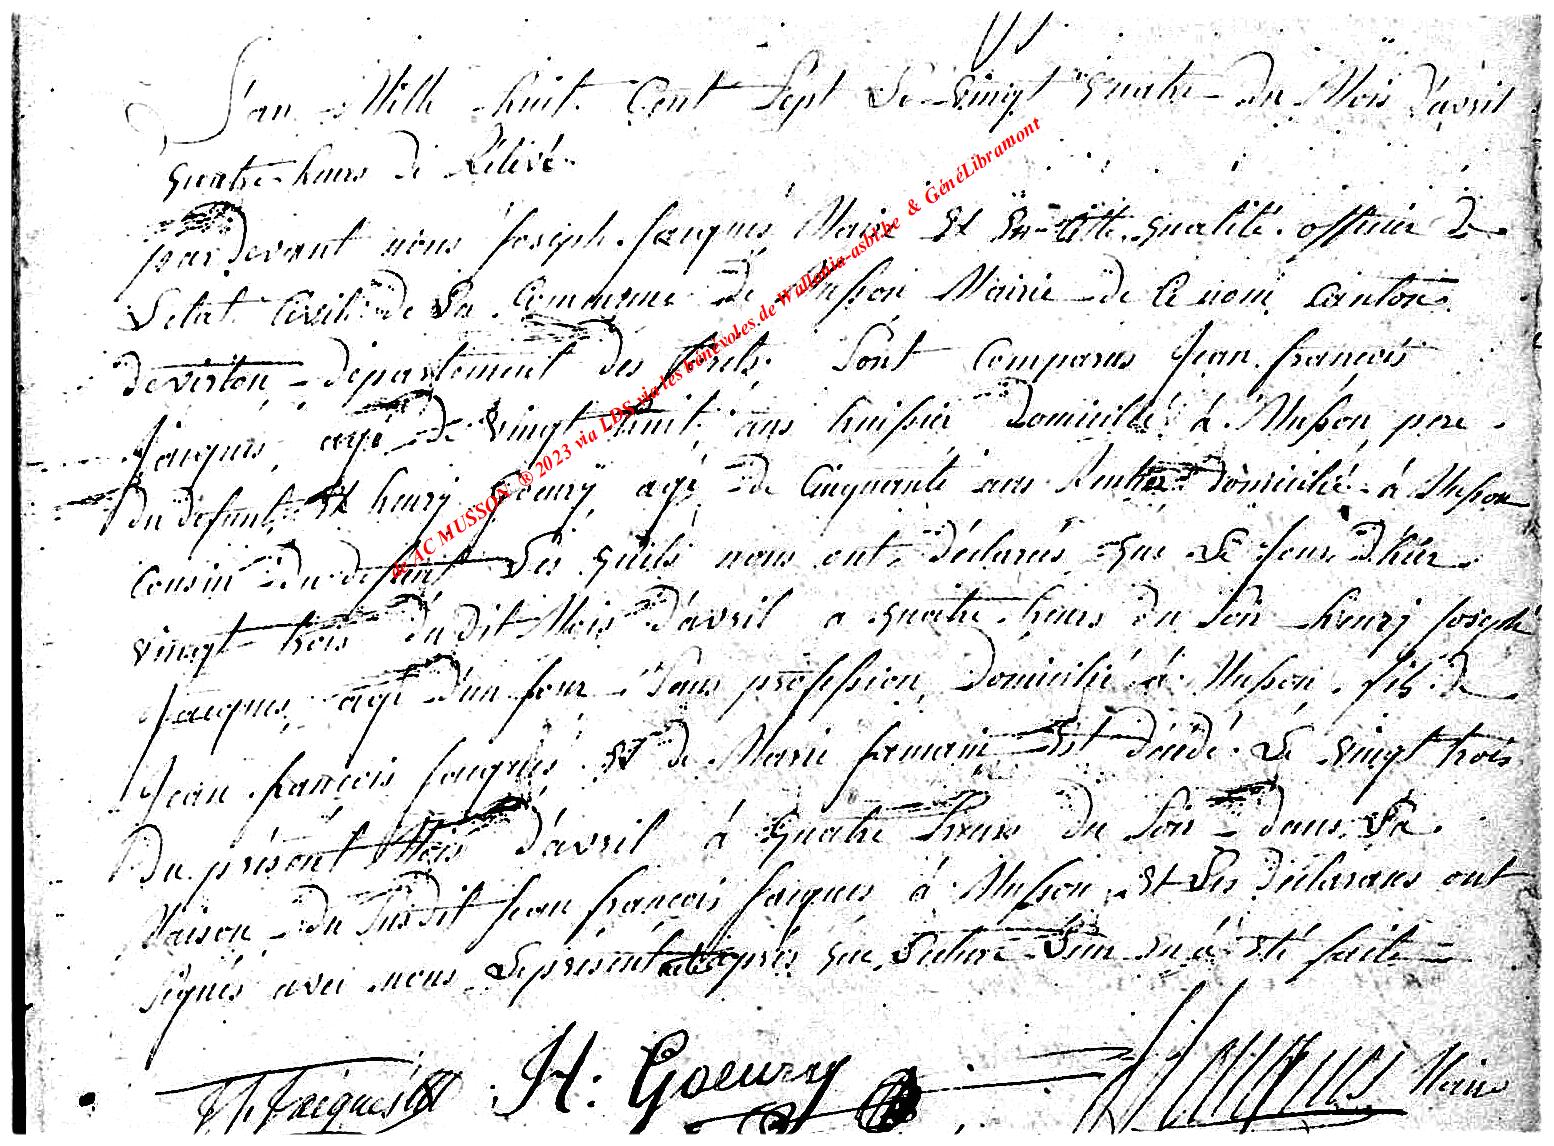 L'an Mille huit Cent Sept Le vingt quatre du Mois d'avril
quatre heures de Rélévé.
pardevant nous Joseph Jacques Maire Et En Cette qualité officier de
L'etat Civile de La Commune de Musson Mairie de Ce nom Canton
de virton departement des forets. Sont Comparus Jean françois
Jacques, agé de vingt huit ans huissier Domicilié à Musson, pere
du défunt, Et henry Goeury agé de Cinquante ans Rentier domicilié à Musson
Cousin du defunt Les quels nous ont déclarés que Le Jour D'hier
vingt trois dudit Mois d'avril a quatre heures du Soir henry Joseph
Jacques, agé d'un Jour Sans profession, Domicilié à Musson, fils de
Jean françois Jacques Et de Marie Est décédé Le vingt trois
Du présent Mois d'avril à quatre heures du Soir dans La
Maison du Susdit Jean françois Jacques à Musson, Et Les déclarans ont
Signés avec nous Le présent acte après que Lecture Leur En á été faite
Jf. Jacques H. Goeury J. Jacques Maire
de AC MUSSON ® 2023 via LDS via les bénévoles de Wallonia-asbl.be & GénéLibramont